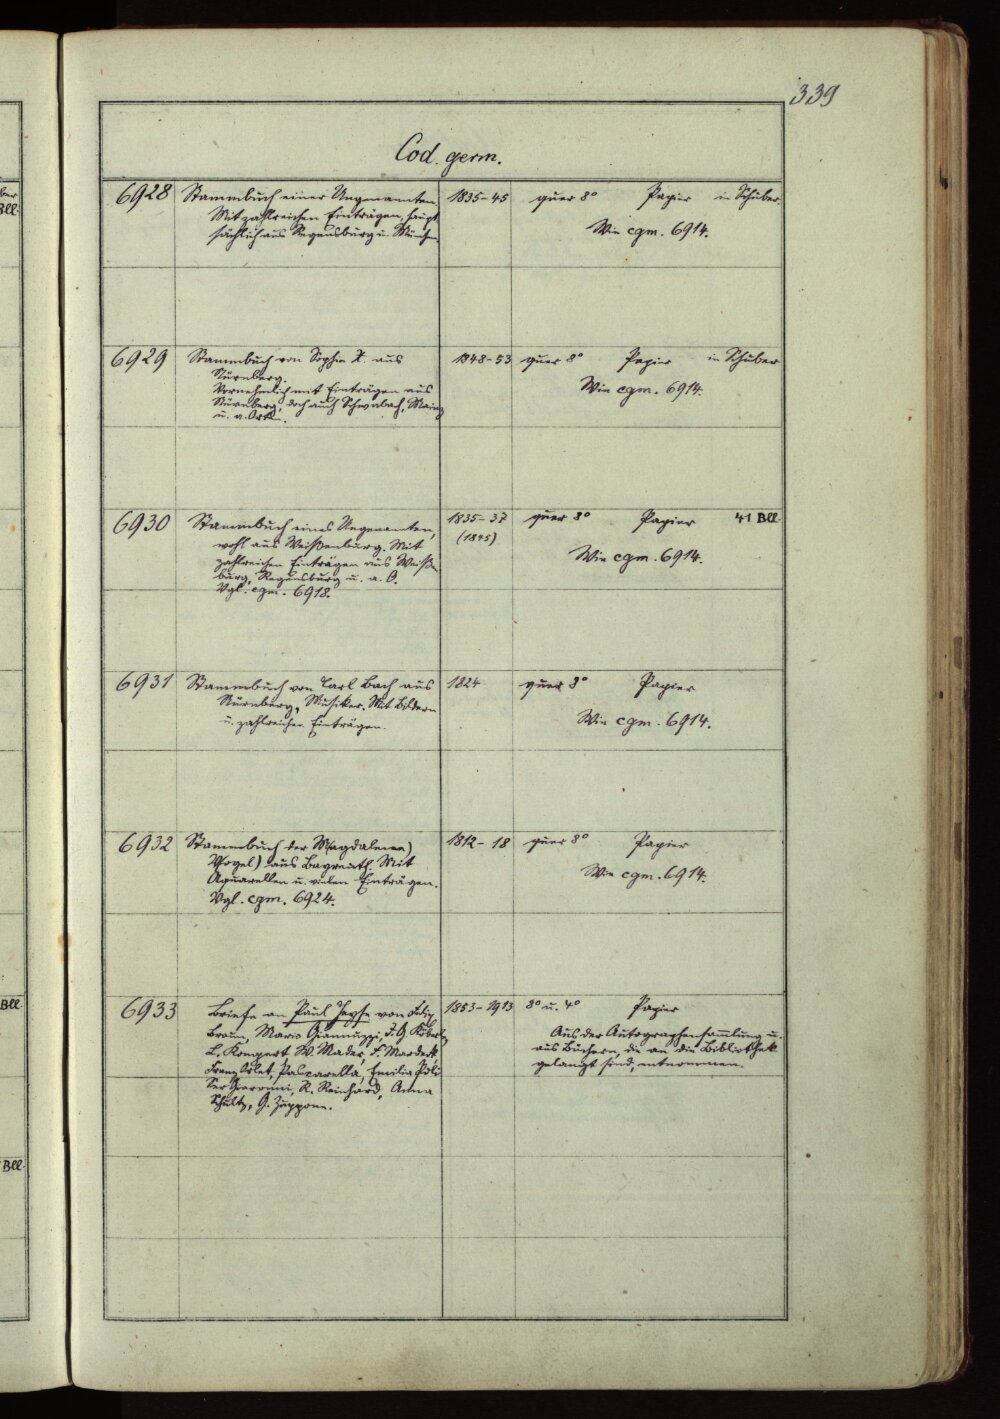 339
Cod. germ.
6928 Stammbuch einer Ungenannten 1835-45 quer 8° Papier in Schuber
Mit zahlreichen Einträgen, haupt
sächlich aus Regensburg u. München
Wie cgm. 6914.
6929 Stammbuch von Sophie X. aus 1848-53 quer 8° Papier in Schuber
Nürnberg.
Vornehmlich mit Einträgen aus
Nürnberg, doch auch Schwabach, Mainz
u. a. Orte.
Wie cgm. 6914.
6930 Stammbuch eines Ungenannten, 1835-37 quer 8° Papier 41 Bll.
(1845)
wohl aus Weißenburg. Mit
zahlreichen Einträgen aus Weißen
burg, Regensburg u. a. O.
Vgl. cgm. 6918.
Wie cgm. 6914.
6931 Stammbuch von Carl Bach aus 1824 quer 8° Papier
Nürnberg, Musiker. Mit Bildern
u. zahlreichen Einträgen.
Wie cgm. 6914.
6932 Stammbuch der M(agdalena) 1812-18 quer 8° Papier
V(ogel) aus Bayreuth. Mit
Aquarellen u. vielen Einträgen.
Vgl. cgm. 6924.
Wie cgm. 6914.
6933 Briefe an Paul Heyse von 1853-1913 8° u. 4° Papier
Braun, Mario Giannuzzi, F. G.
L. Kongert W. Mader, F. Mardek
Franz Pascarella, Emilia Poli
R. Reinhard, Anna
Schultz, G. Zuppone.
Aus der Autographensammlung u.
aus Büchern, die an die Bibliothek
gelangt sind, entnommen.
Bll.
Bll.
Bll.